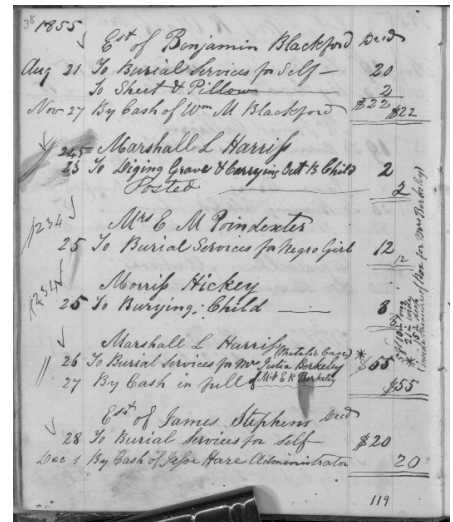 38 1855
Est of Benjamin Blackford Decd
Aug 21 To Burial Services for Self — 20
To Sheet & Pillow — 2
$22
Nov 27 By Cash of Wm M Blackford $22
245 Marshall L Harriss
23 To Diging Grave & Carrying Out B Child 2
Posted — 2
1234 Mrs E M Poindexter
25 To Burial Services for Negro Girl 12
12
1234 Morriss Hickey
25 To Burying Child — 8
8
Marshall L Harriss
(Metalic Case) *
26 To Burial Services for Mrs Julia Berkeley $55
27 By Cash in full of Mr E R Berkeley $55
* 5 ft 10 in long
(inside measure of Box for Mrs Berkeley)
Est of James Stephens Decd
28 To Burial Services for Self — $20
Dec 1 By Cash of Jesse Hare Administrator 20
119